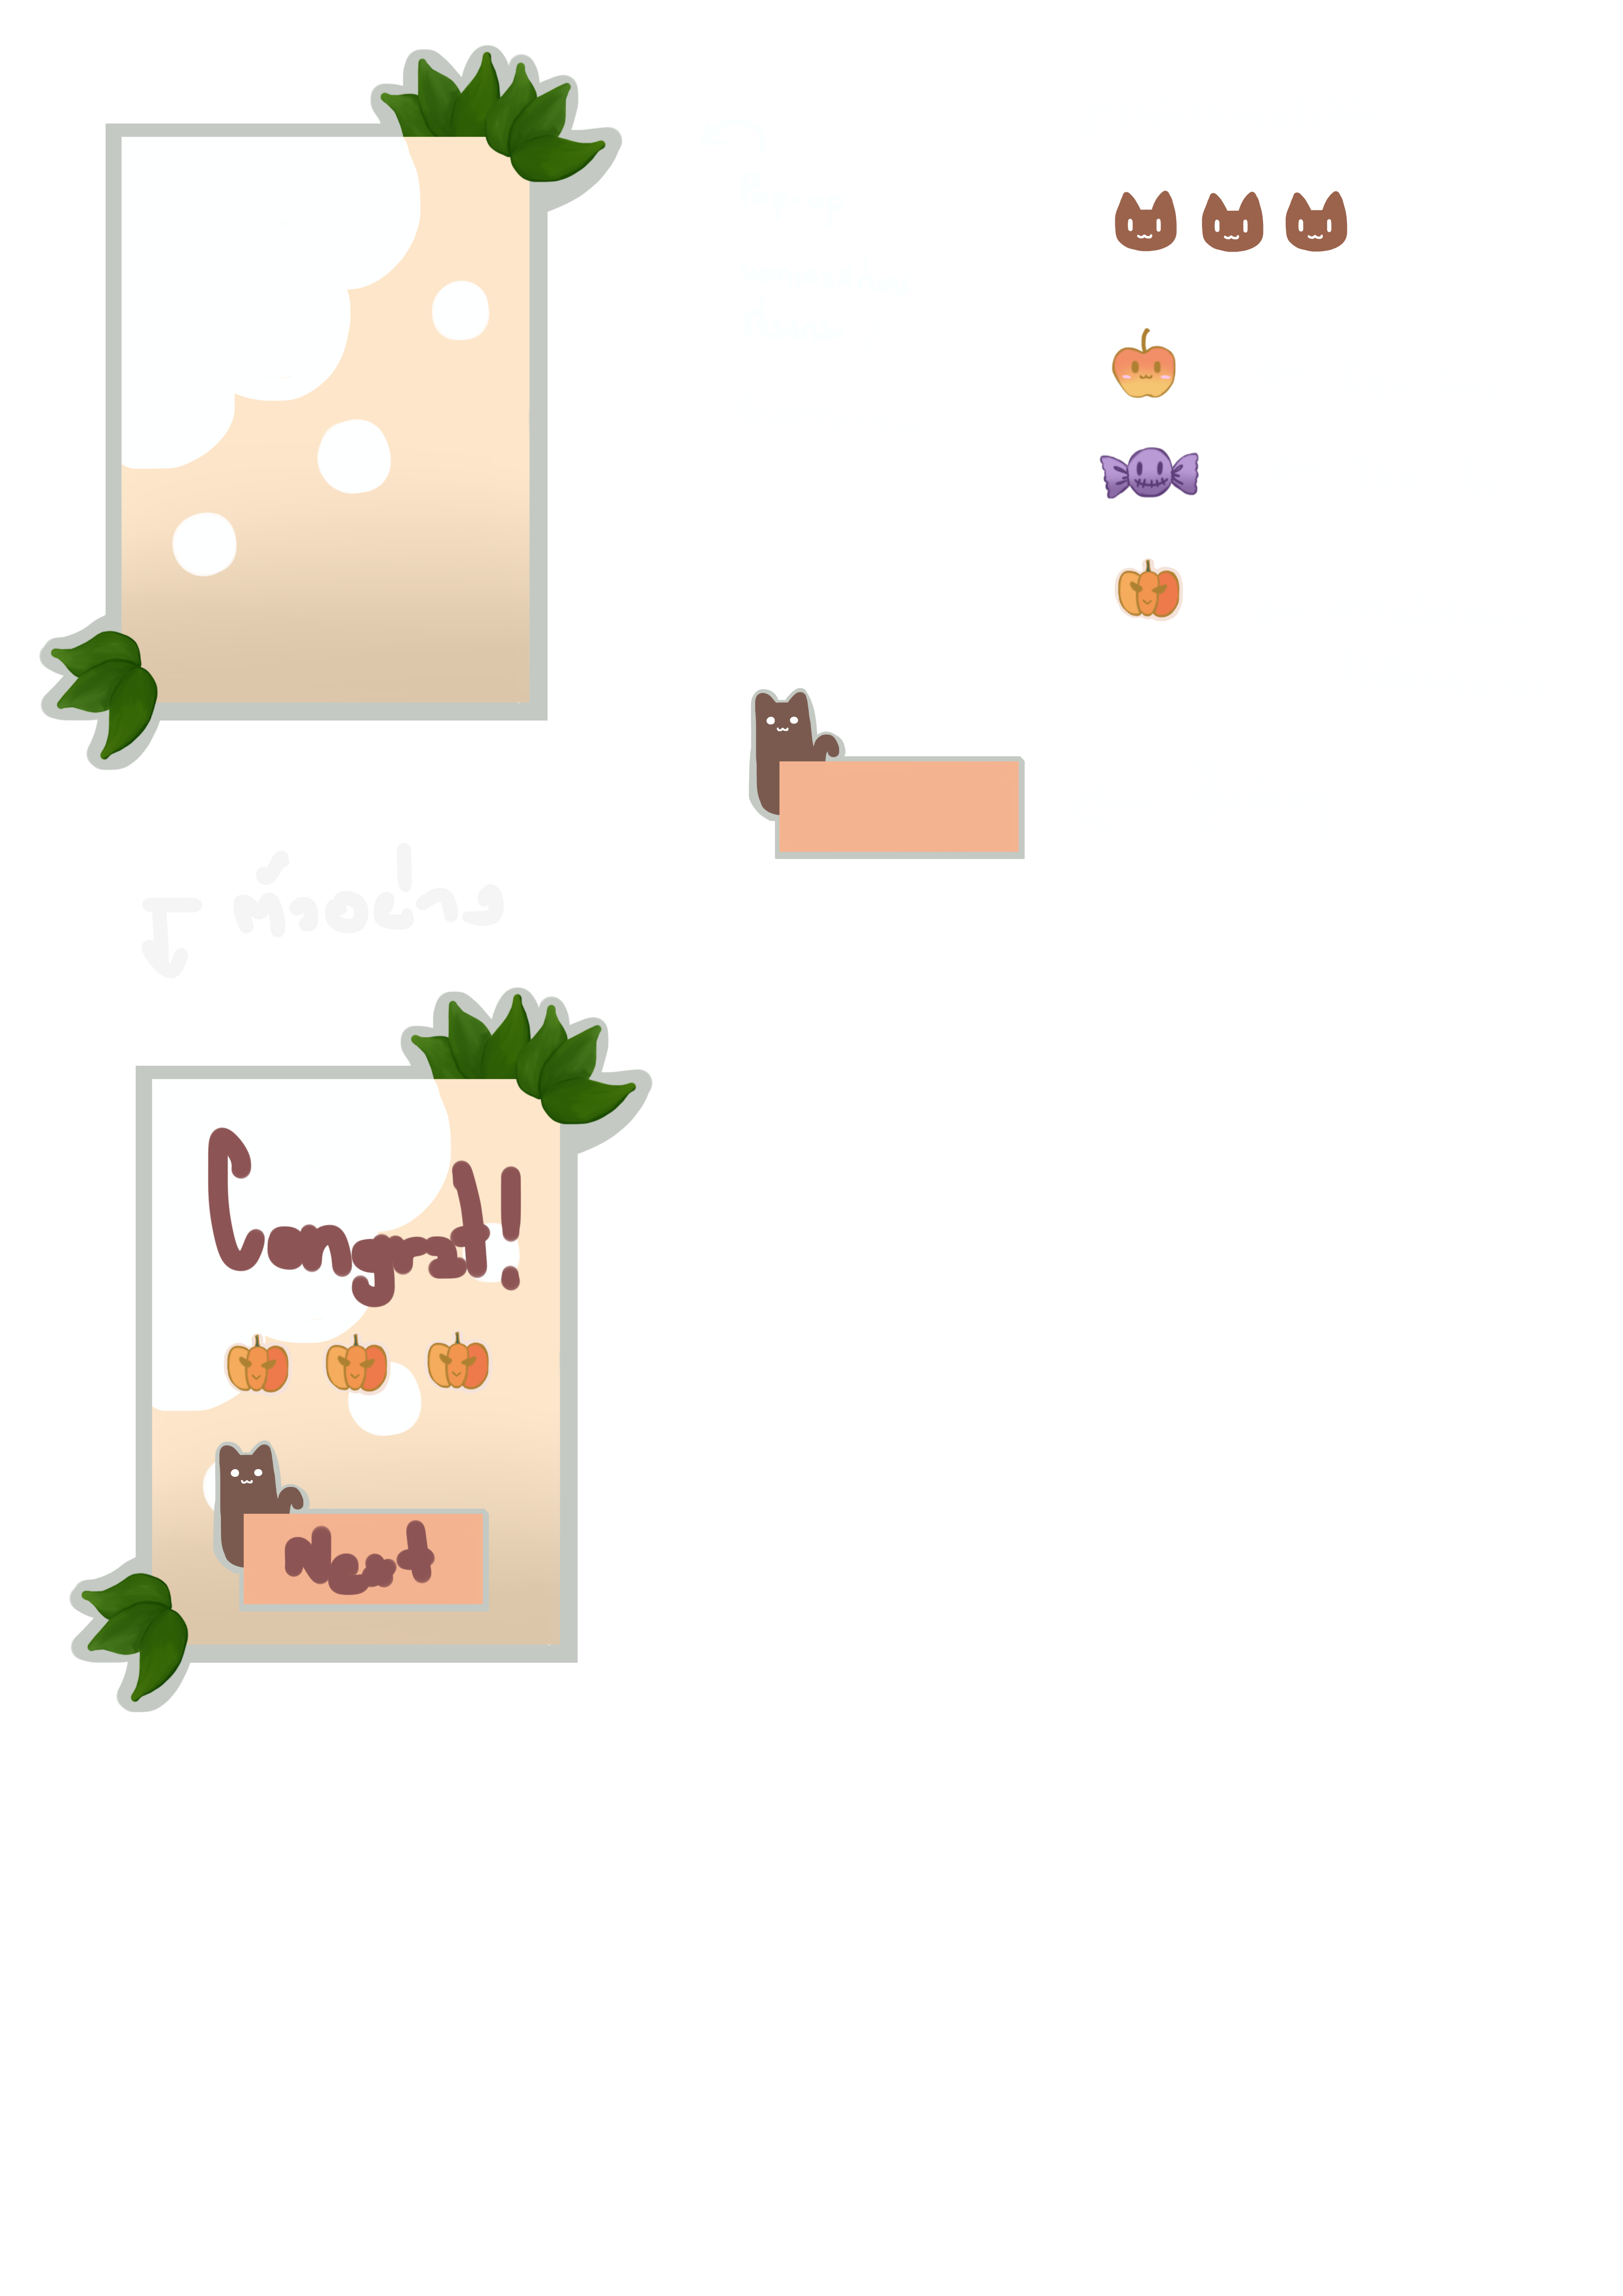 ตัวอย่าง
Congrat!
Next